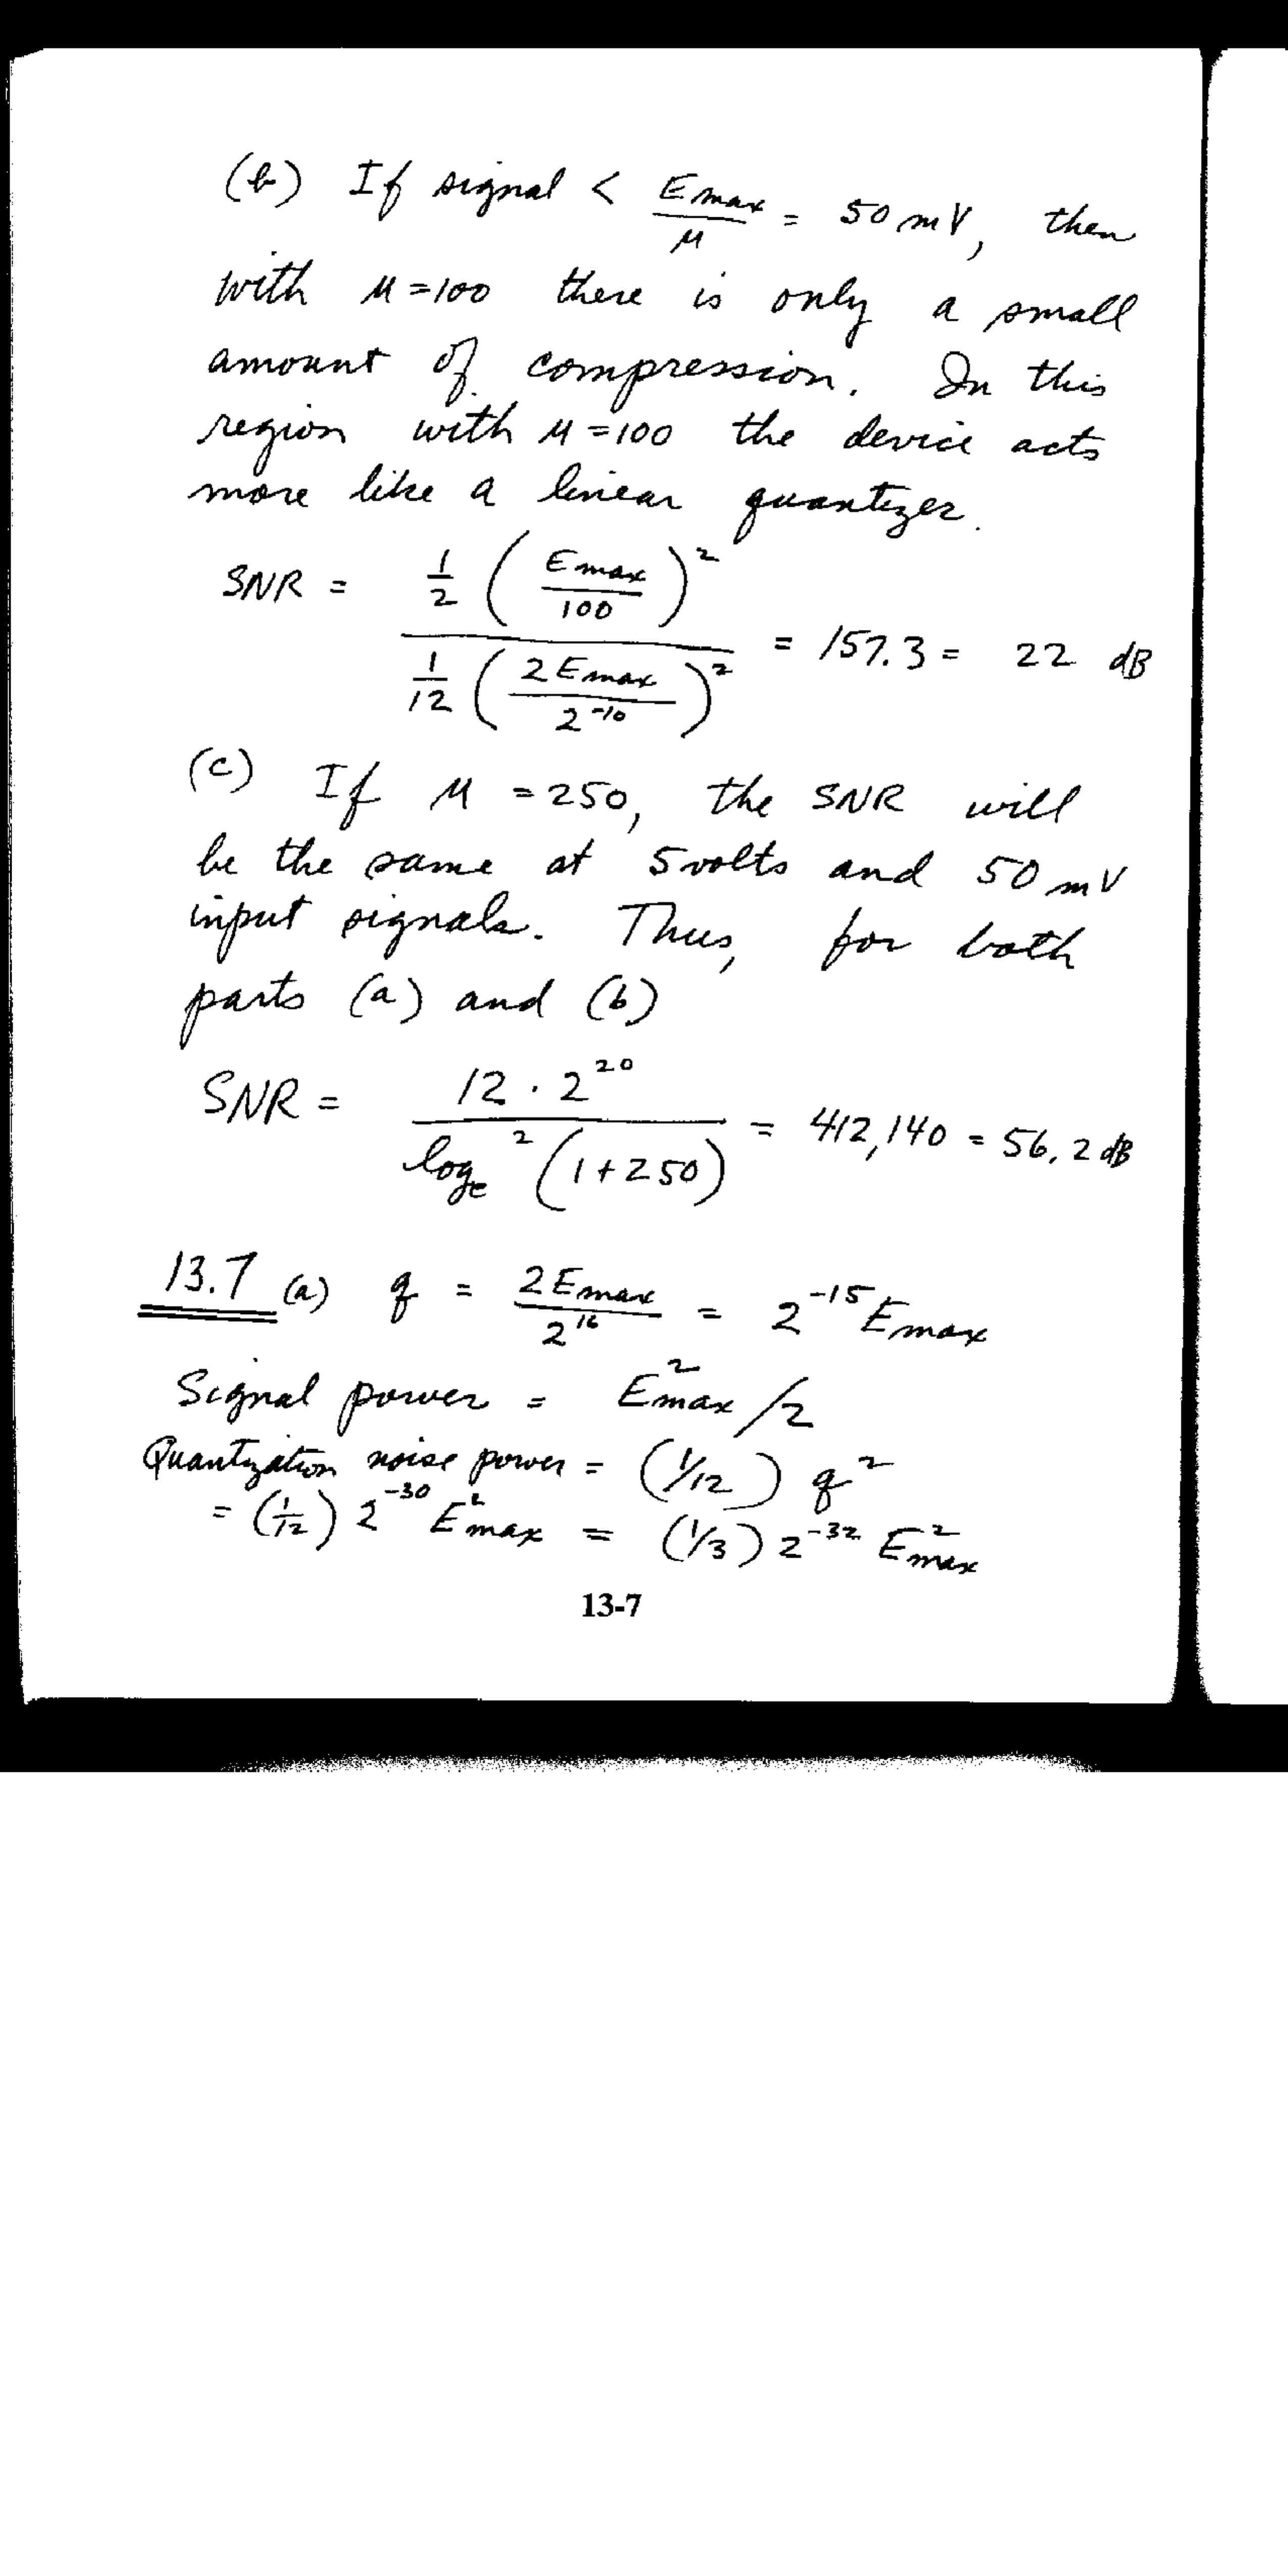 (b) If signal < Emax/μ = 50 mV, then
with μ=100 there is only a small
amount of compression. In this
region with μ=100 the device acts
more like a linear quantizer.
SNR = (1/2 (Emax/100)²) / (1/12 (2Emax/2⁻¹⁰)²) = 157.3 = 22 dB
(c) If μ = 250, the SNR will
be the same at 5 volts and 50 mV
input signals. Thus, for both
parts (a) and (b)
SNR = 12 · 2²⁰ / logₑ² (1+250) = 412,140 = 56.2 dB
13.7 (a) q = 2Emax/2¹⁶ = 2⁻¹⁵ Emax
Signal power = E²max/2
Quantization noise power = (1/12) q²
= (1/12) 2⁻³⁰ E²max = (1/3) 2⁻³² E²max
13-7